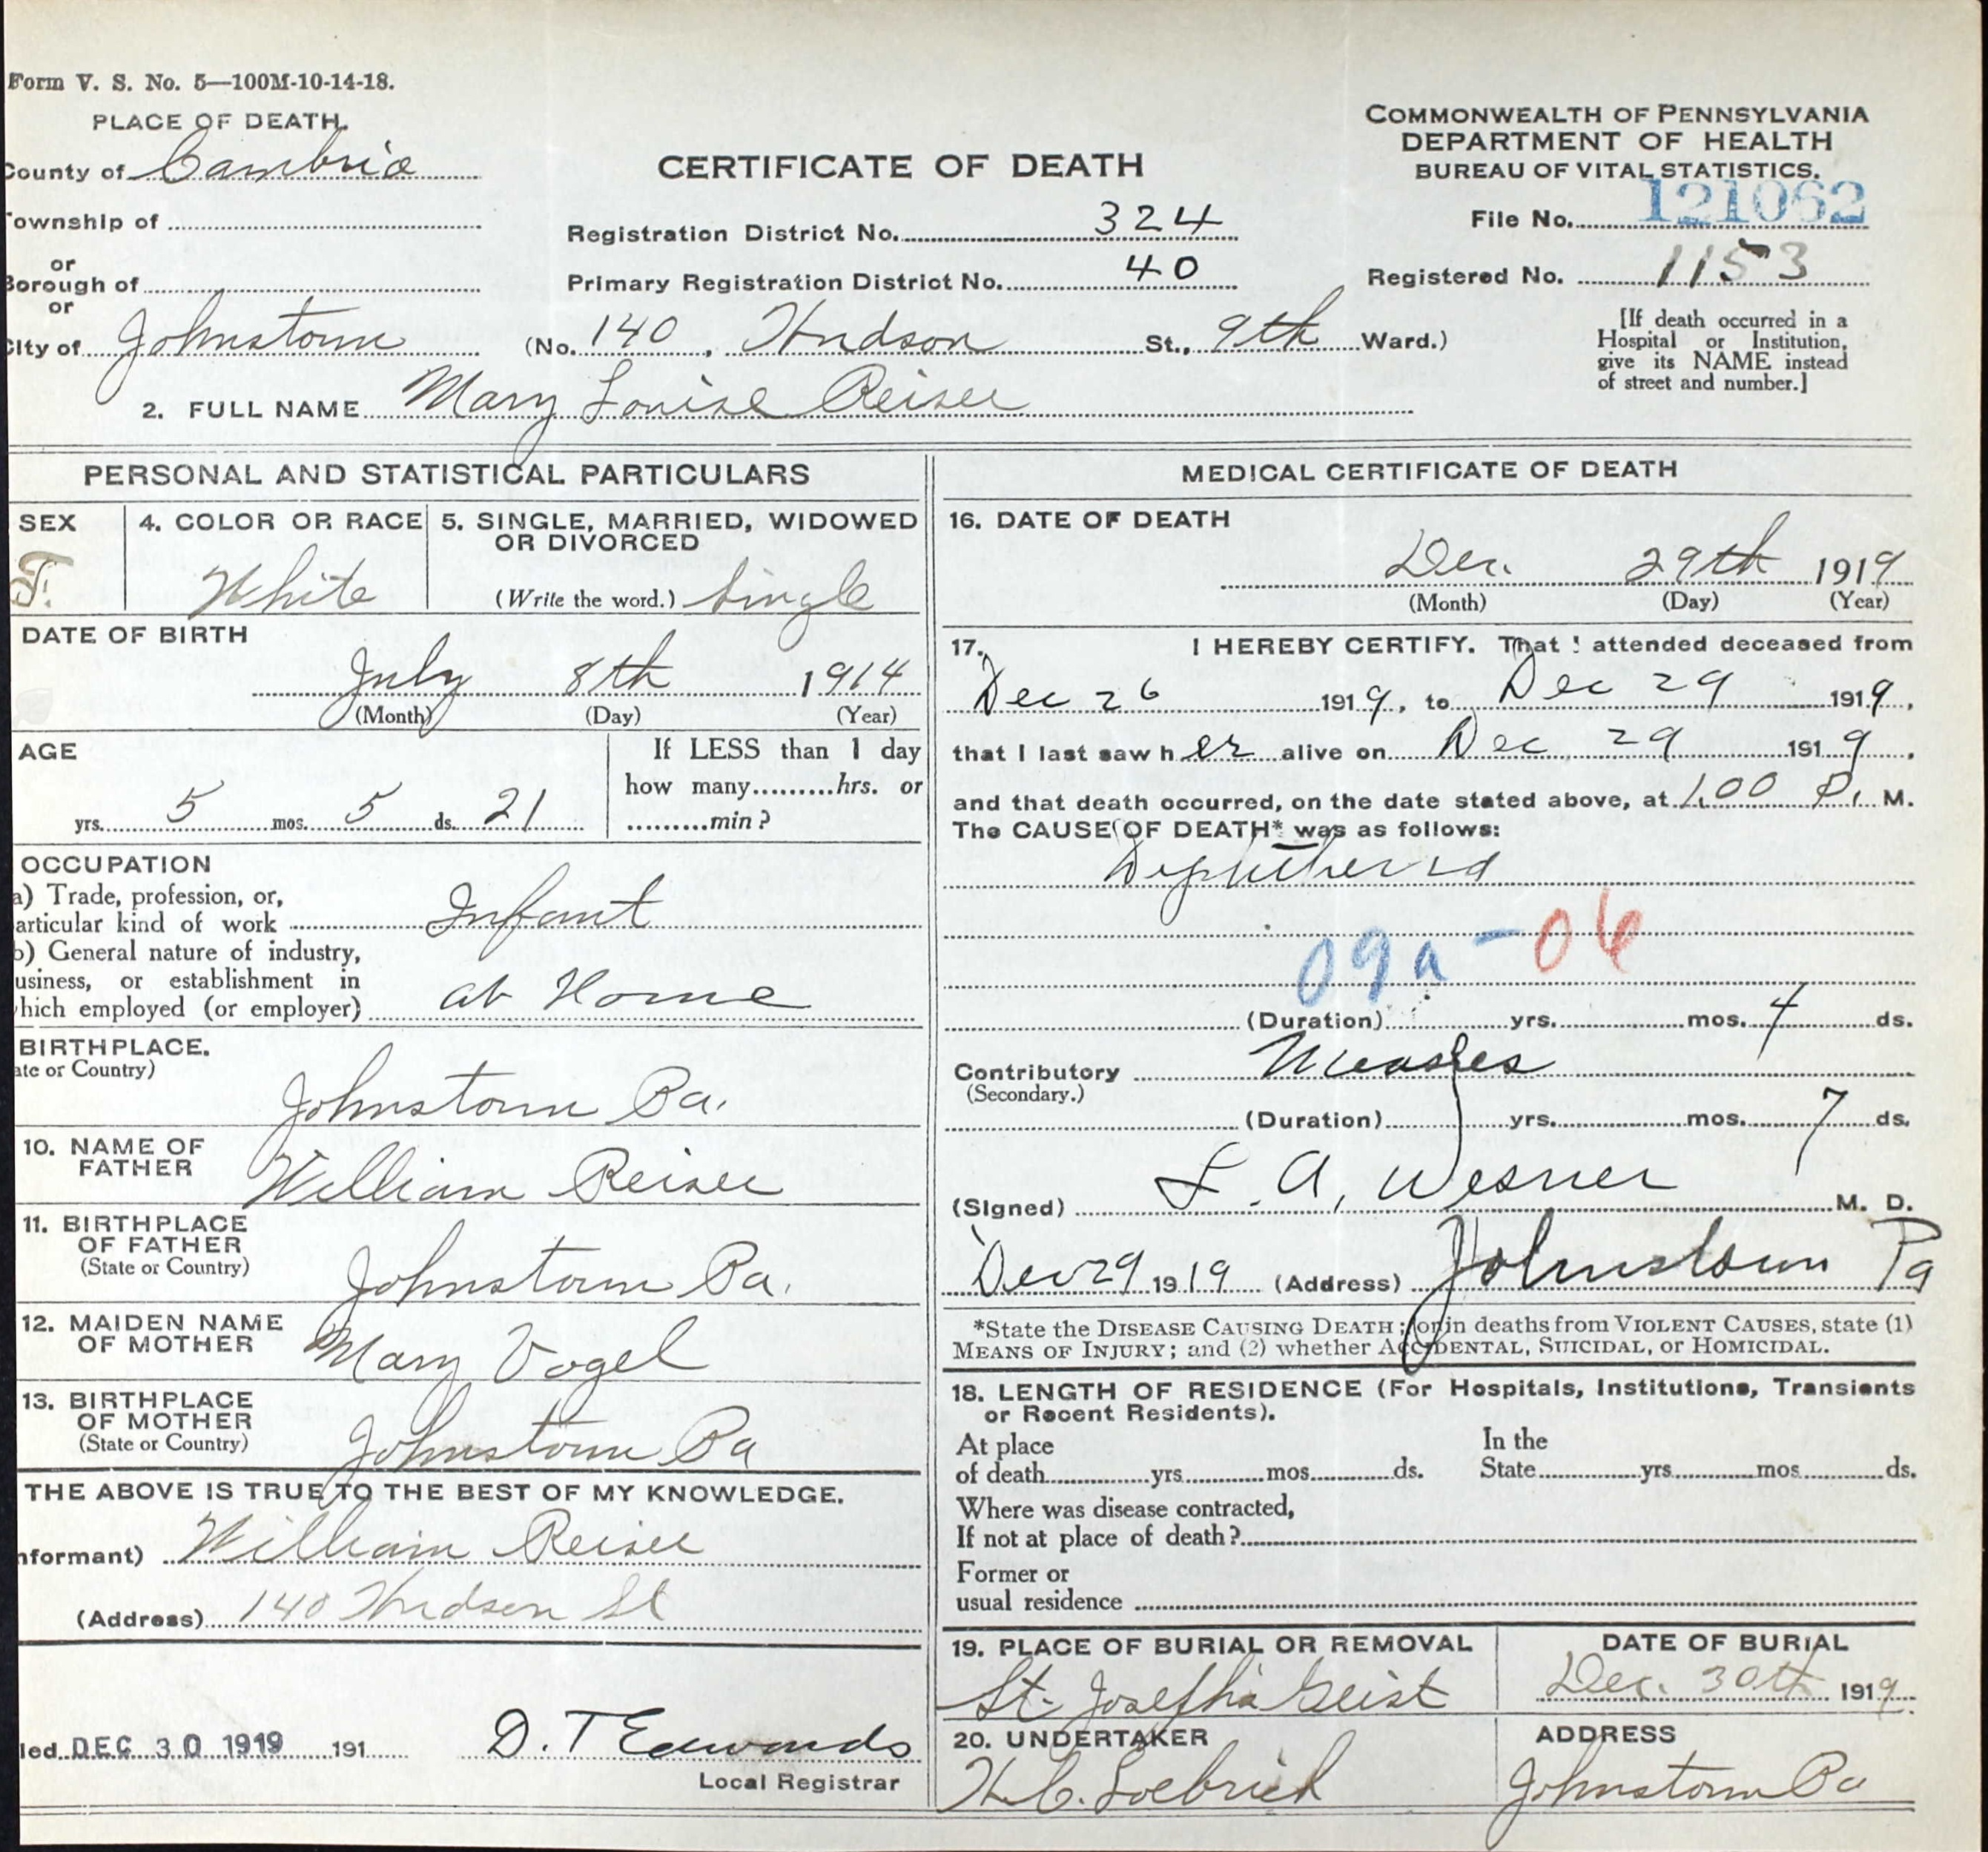 Form V. S. No. 5—100M-10-14-18.
PLACE OF DEATH.
County of Cambria
ownship of
or
Borough of
or
City of Johnstown (No. 140, Hudson St., 9th Ward.)
CERTIFICATE OF DEATH
Registration District No. 324
Primary Registration District No. 40
COMMONWEALTH OF PENNSYLVANIA
DEPARTMENT OF HEALTH
BUREAU OF VITAL STATISTICS.
File No. 121062
Registered No. 1153
[If death occurred in a
Hospital or Institution,
give its NAME instead
of street and number.]
2. FULL NAME Mary Louise Reiser
PERSONAL AND STATISTICAL PARTICULARS
SEX
F.
4. COLOR OR RACE
White
5. SINGLE, MARRIED, WIDOWED
OR DIVORCED
(Write the word.) Single
DATE OF BIRTH
July 8th 1914
(Month) (Day) (Year)
AGE
yrs. 5 mos. 5 ds. 21
If LESS than 1 day
how many.........hrs. or
.........min?
OCCUPATION
a) Trade, profession, or,
articular kind of work Infant
b) General nature of industry,
usiness, or establishment in
hich employed (or employer) at Home
BIRTHPLACE.
ate or Country)
Johnstown Pa.
10. NAME OF
FATHER
William Reiser
11. BIRTHPLACE
OF FATHER
(State or Country)
Johnstown Pa.
12. MAIDEN NAME
OF MOTHER
Mary Vogel
13. BIRTHPLACE
OF MOTHER
(State or Country)
Johnstown Pa
THE ABOVE IS TRUE TO THE BEST OF MY KNOWLEDGE.
nformant) William Reiser
(Address) 140 Hudson St
led DEC 30 1919 191
D. T Edwards
Local Registrar
MEDICAL CERTIFICATE OF DEATH
16. DATE OF DEATH
Dec. 29th 1919
(Month) (Day) (Year)
17. I HEREBY CERTIFY. That I attended deceased from
Dec 26 1919, to Dec 29 1919,
that I last saw her alive on Dec 29 1919,
and that death occurred, on the date stated above, at 1.00 P. M.
The CAUSE OF DEATH* was as follows:
Diphtheria
09a - 06
(Duration) yrs. mos. 4 ds.
Contributory Measles
(Secondary.)
(Duration) yrs. mos. 7 ds.
(Signed) L. A. Wesner M. D.
Dec 29 1919 (Address) Johnstown Pa
*State the DISEASE CAUSING DEATH; or in deaths from VIOLENT CAUSES, state (1)
MEANS OF INJURY; and (2) whether ACCIDENTAL, SUICIDAL, or HOMICIDAL.
18. LENGTH OF RESIDENCE (For Hospitals, Institutions, Transients
or Recent Residents).
At place
of death yrs mos ds.
In the
State yrs mos ds.
Where was disease contracted,
If not at place of death?
Former or
usual residence
19. PLACE OF BURIAL OR REMOVAL
St. Joseph's Geist
DATE OF BURIAL
Dec. 30th 1919
20. UNDERTAKER
H. C. Loebrich
ADDRESS
Johnstown Pa